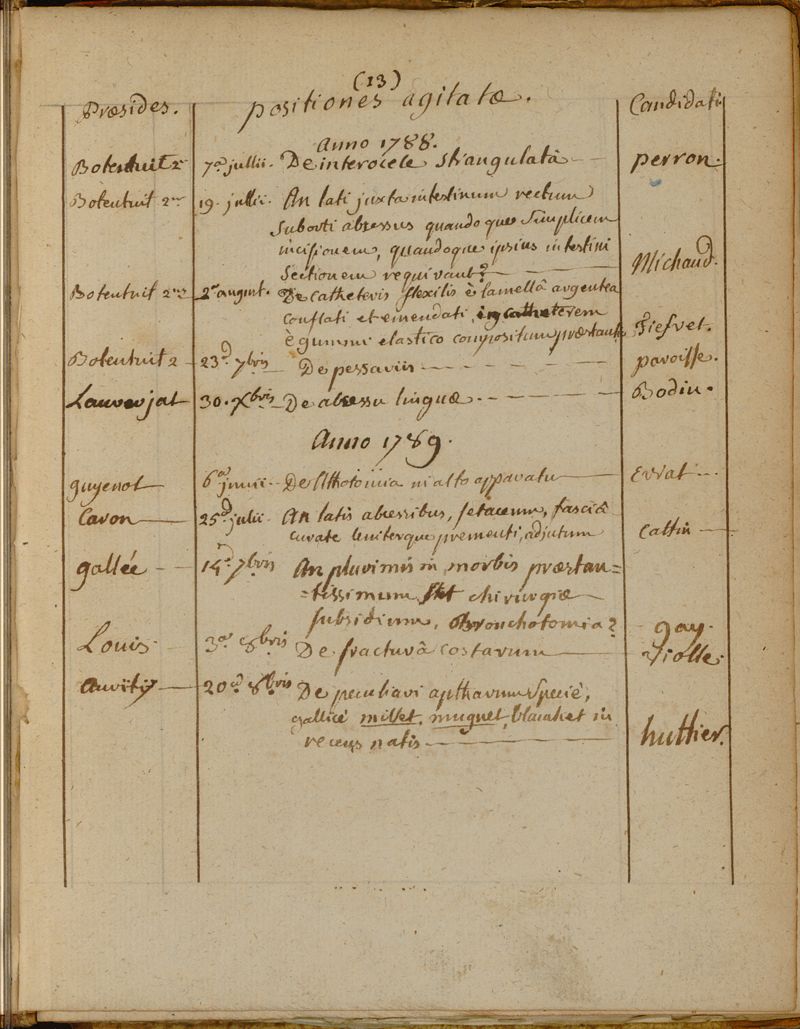 (13)
Præsides. positiones agitatæ. Candidati
Anno 1788.
Botentuit 2us 7a jullii. De enterocele strangulatâ — perron.
Botentuit 2us 19. jullii. An lati juxta intestinum rectum
suborti abcessus quandoque simplicem
incisionem, quandoque ipsius intestini
sectionem requirant? — Michaud.
Botentuit 2us 2a august. De catheteris flexilis è lamellâ argenteâ
conflati et emendati, in catheterem
è gummi elastico compositum præstantiâ fiefvet.
Botentuit 2 23a 7bris De pessariis — paroisse.
Lauverjat 30. Xbris De abcessu linguæ. — Bodin.
Anno 1789.
guyenot 6a junii. De lithotomia in alto apparatu — Errat.
Caron 25a julii. An latis abcessibus, setaceum, fasciâ
curate leniterque prementi, adjutum Cattin
gallée 14a 7bris An plurimis in morbis præstan=
=tissimum sit chirurgiæ
subsidium, Bronchotomia? gay.
Louis. 3a 8bris De fracturâ costarum — violle.
Auvity 20a 8bris De peculiari aptharum specie,
gallicè millet, muguet, blanchet in
recens natis — huttier.